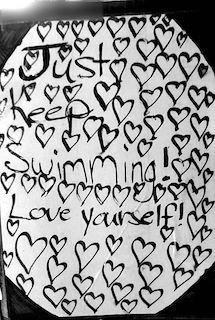 Just
Keep
Swimming!
Love yourself!